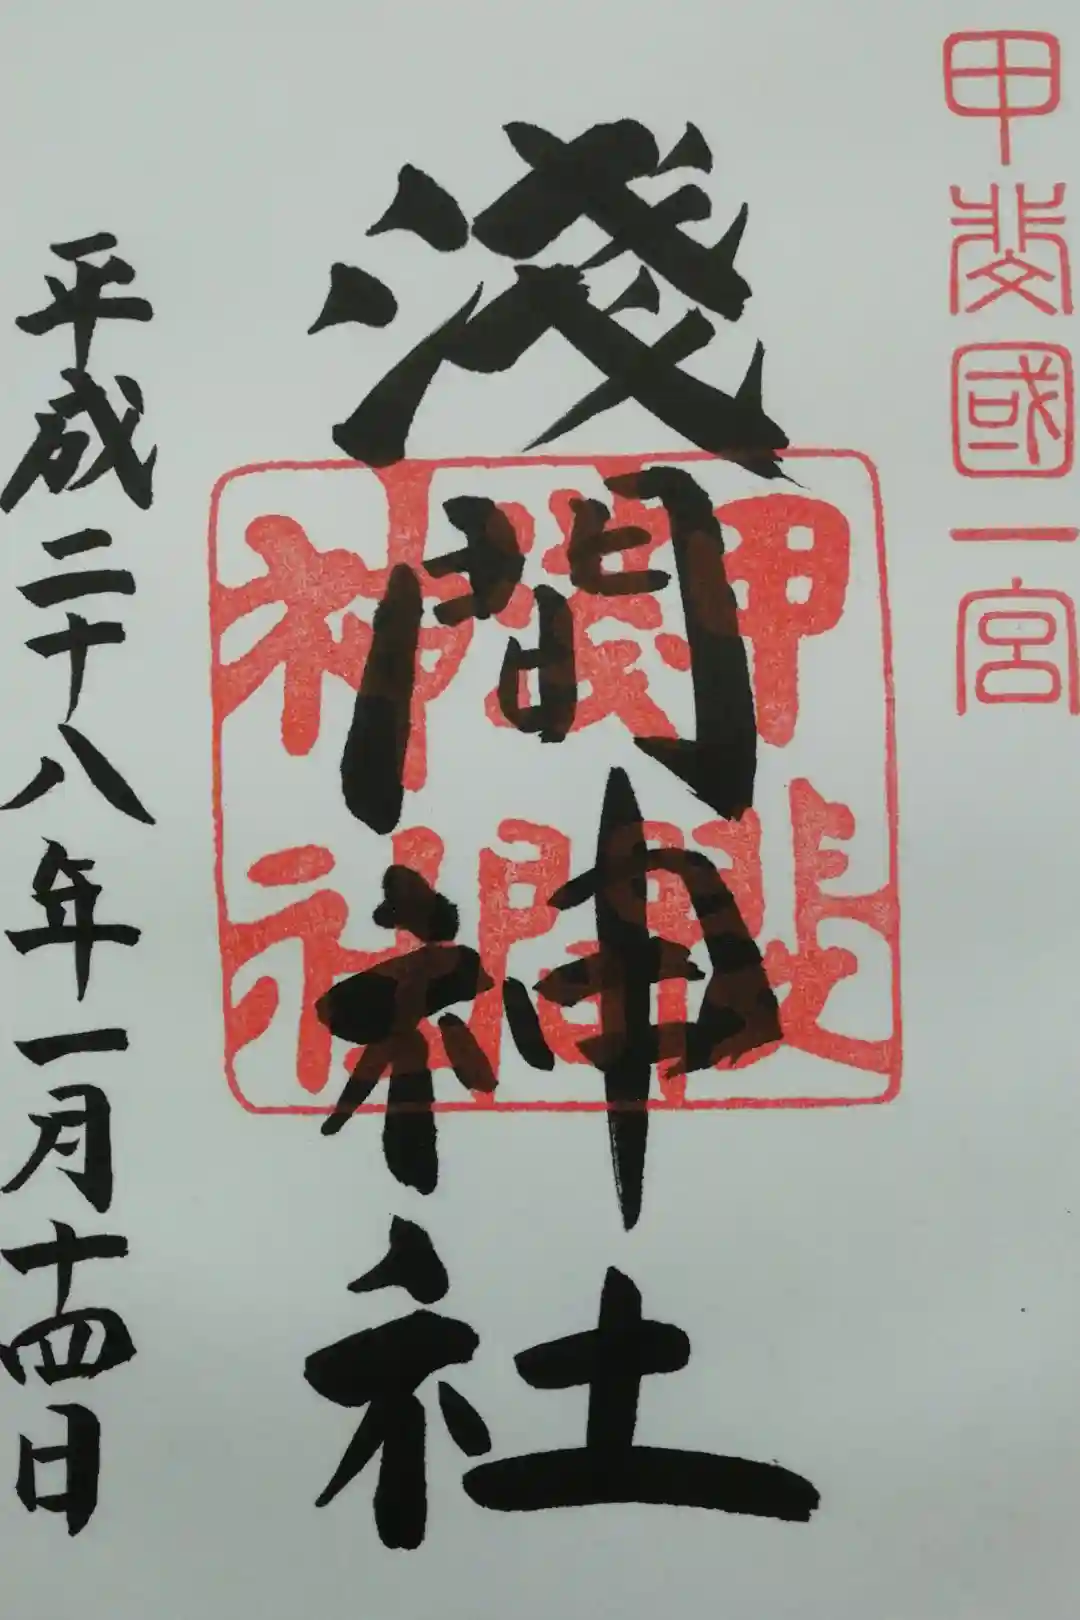 甲斐國一宮
淺間神社
甲斐
淺間
神社
平成二十八年一月十四日